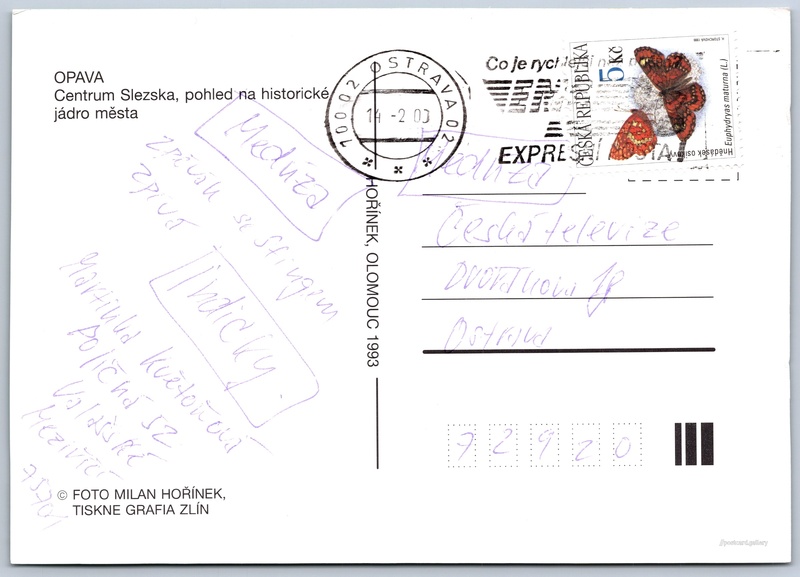 OPAVA
Centrum Slezska, pohled na historické
jádro města
Meduza
zpívák se stingem
zpívá
Indicky.
Martinka Květoňová
Poličná 52
Valašské
Meziříčí
75701
© FOTO MILAN HOŘÍNEK,
TISKNE GRAFIA ZLÍN
HOŘÍNEK, OLOMOUC 1993
10002 OSTRAVA 02
14 -2 00
Co je rychlejší
EMS
EXPRES POSTA
ČESKÁ REPUBLIKA
5 Kč
Euphydryas maturna (L.)
Hnědásek osikový
Meduza
Česká televize
Dvořákova 18
Ostrava
72920
//postcard.gallery